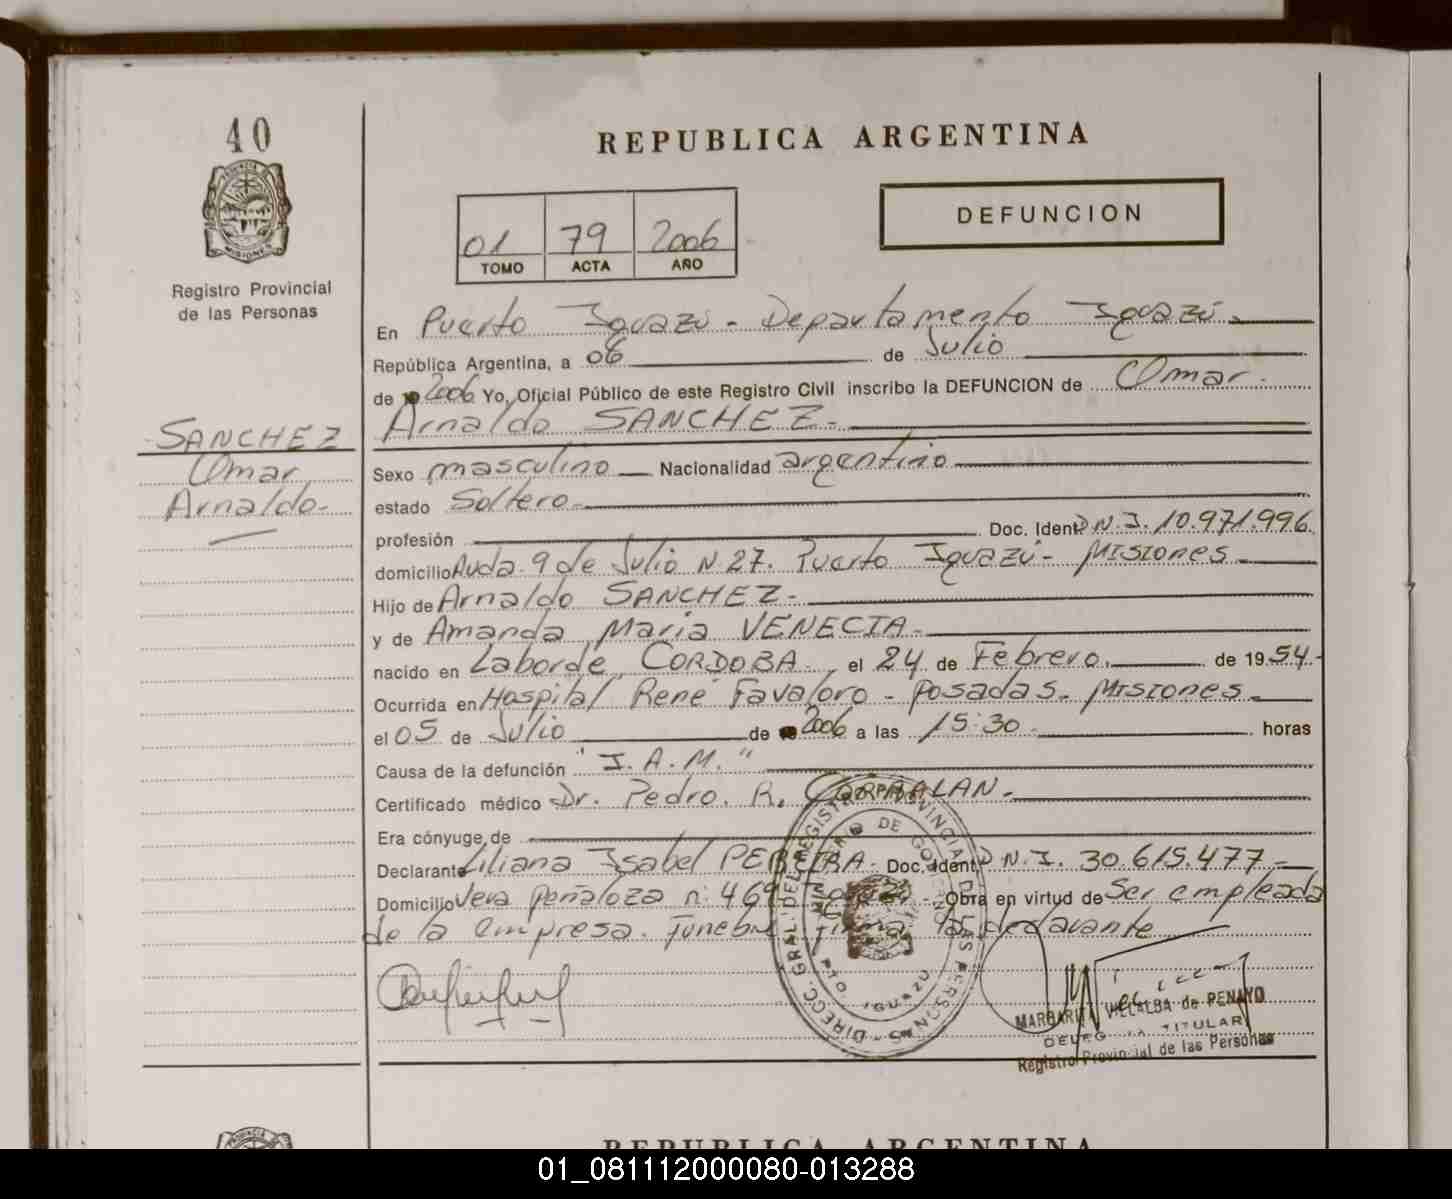 40
PROVINCIA DE
MISIONES
Registro Provincial
de las Personas
REPUBLICA ARGENTINA
01 79 2006
TOMO ACTA AÑO
DEFUNCION
En Puerto Iguazú - Departamento Iguazú.
República Argentina, a 06 de Julio
de 2006 Yo, Oficial Público de este Registro Civil inscribo la DEFUNCION de Omar
Arnaldo SANCHEZ.
SANCHEZ
Omar
Arnaldo-
Sexo masculino Nacionalidad argentino
estado Soltero
profesión Doc. Ident. D.N.I. 10.971.996
domicilio Avda. 9 de Julio N 27. Puerto Iguazú - MISIONES
Hijo de Arnaldo SANCHEZ-
y de Amanda Maria VENECIA-
nacido en Laborde, CORDOBA, el 24 de Febrero. de 1954.-
Ocurrida en Hospital René Favaloro - Posadas. MISIONES
el 05 de Julio de 2006 a las 15:30 horas
Causa de la defunción "I.A.M."
Certificado médico Dr. Pedro. R.
Era cónyuge de
Declarante Liliana Isabel PEREIRA- Doc. Ident. D.N.I. 30.615.477-
Domicilio Vera Peñaloza n: 469 Obra en virtud de Ser empleada
de la empresa. Funebre Firma la declarante
DIRECC. GRAL. DEL REGISTRO PROVINCIAL DE LAS PERSONAS
MINISTERIO DE GOBIERNO
PTO. IGUAZU
MARGARITA VILLALBA de PENAYO
DELEGADA TITULAR
Registro Provincial de las Personas
REPUBLICA ARGENTINA
01_081112000080-013288